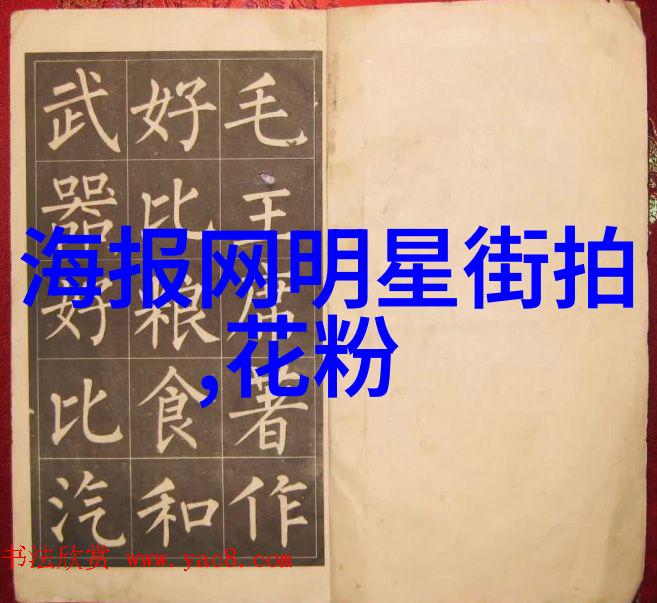 毛主席著作
好比粮食和
武器好比汽
海报网明星街拍
,花粉
书法欣赏 www.yac8.com